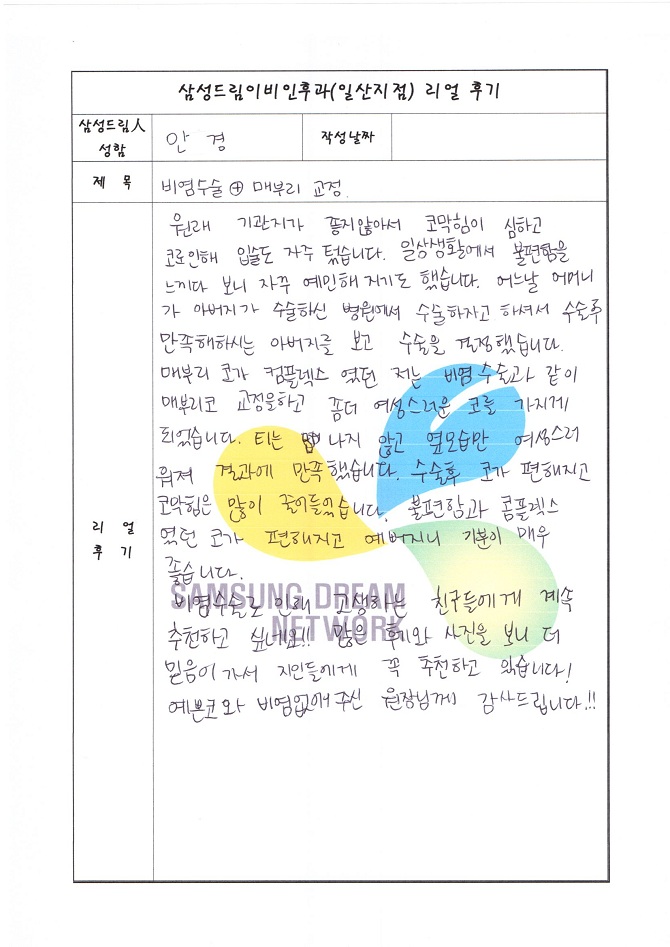 삼성드림이비인후과(일산지점) 리얼 후기
삼성드림人 성함
안 경
작성날짜
제 목
비염수술 ⊕ 매부리 교정.
리 얼 후 기
원래 기관지가 좋지않아서 코막힘이 심하고
코로인해 입술도 자주 텄습니다. 일상생활에서 불편함을
느끼다 보니 자꾸 예민해지기도 했습니다. 어느날 어머니
가 아버지가 수술하신 병원에서 수술하자고 하셔서 수술후
만족해하시는 아버지를 보고 수술을 결정했습니다.
매부리 코가 컴플렉스 였던 저는 비염수술과 같이
매부리코 교정을하고 좀더 여성스러운 코를 가지게
되었습니다. 티는 나지 않고 옆모습만 여성스러
워져 결과에 만족했습니다. 수술후 코가 편해지고
코막힘은 많이 줄어들었습니다. 불편함과 콤플렉스
였던 코가 편해지고 예뻐지니 기분이 매우
좋습니다.
비염수술로 인해 고생하는 친구들에게 계속
추천하고 싶네요!! 많은 후기와 사진을 보니 더
믿음이가서 지인들에게 꼭 추천하고 있습니다!
예쁜코와 비염없애주신 원장님께 감사드립니다.!!
SAMSUNG DREAM
NETWORK